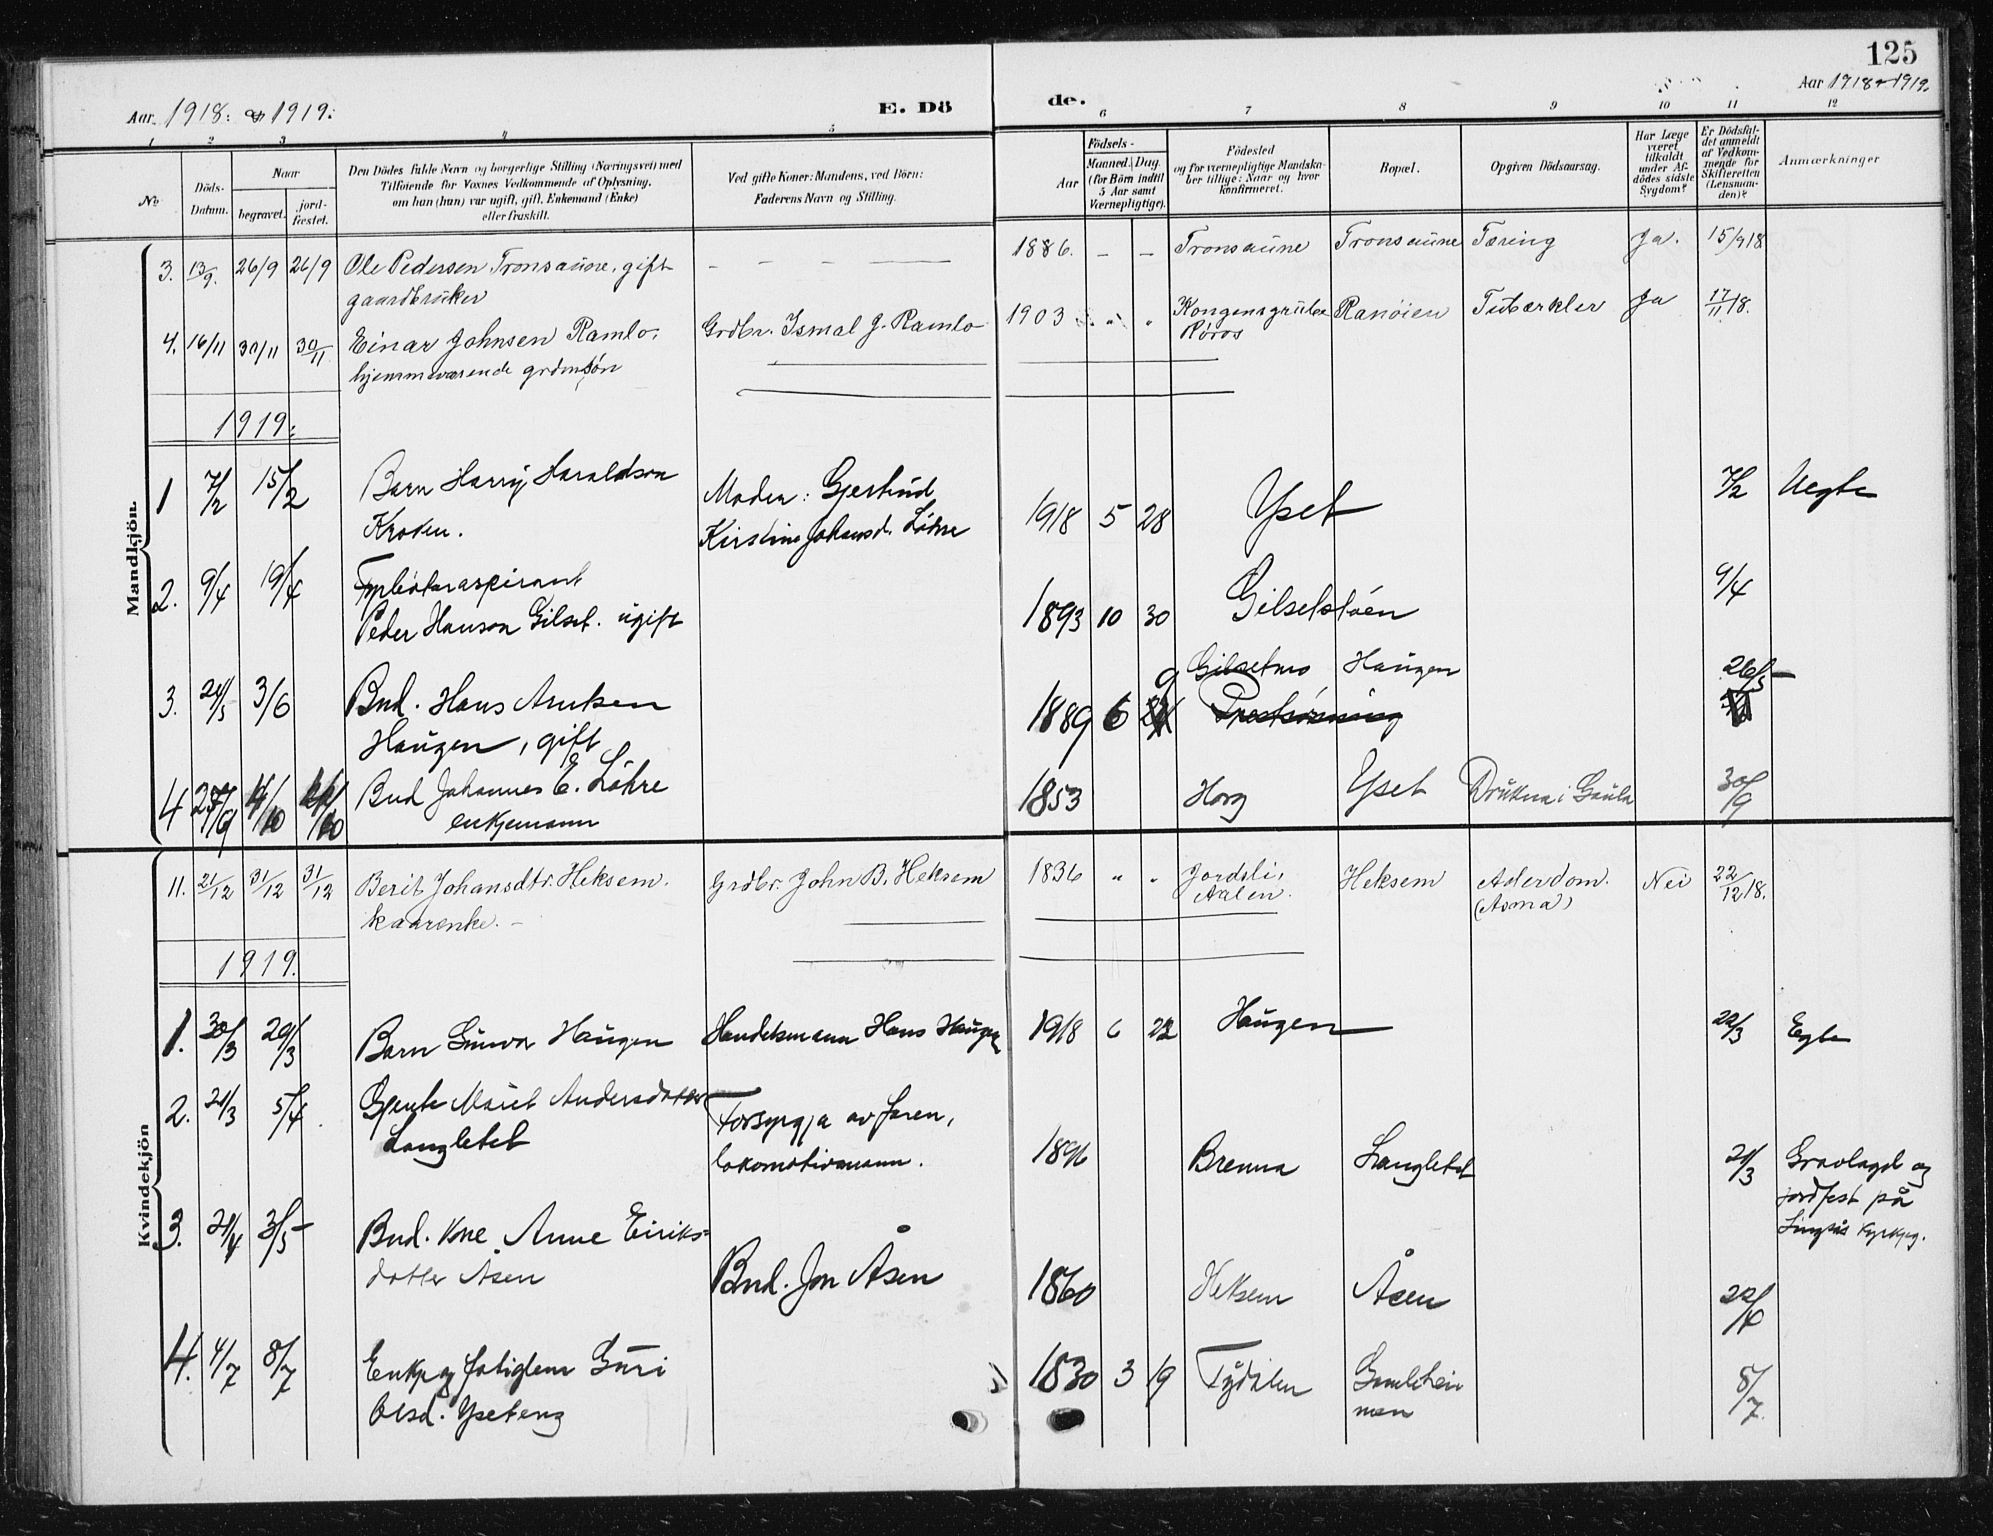 125
Aar 1918: og 1919:
E. Dö
de.
Aar 1918 + 1919.
1 2 3 4 5 6 7 8 9 10 11 12
No
Döds-
Datum.
Naar
begravet.
jord-
fæstet.
Den Dödes fulde Navn og borgerlige Stilling (Næringsvei) med
Tilføiende for Voxnes Vedkommende af Oplysning,
om han (hun) var ugift, gift, Enkemand (Enke)
eller fraskilt.
Ved gifte Koner: Mandens, ved Börn:
Faderens Navn og Stilling.
Fødsels-
Aar
Maaned. Dag.
(for Börn indtil
5 Aar samt
Værnepligtige).
Födested
og for værnepligtige Mandska-
ber tillige: Naar og hvor
konfirmeret.
Bopæl.
Opgiven Dödsaarsag.
Har Læge
været
tilkaldt
under Af-
dödes sidste
Sygdom?
Er Dödsfal-
det anmeldt
af Vedkom-
mende for
Skifteretten
(Lensman-
den)?
Anmærkninger
Mandkjön.
3. 13/9. 26/9 26/9 Ole Pedersen Tronsaune, gift
gaardbruker
1886. - - Tronsaune Tronsaune Tæring Ja. 15/9 18
4. 16/11 30/11 30/11 Einar Johnsen Ramlo.
hjemmeværende grdmsøn
Grdbr. Ismal J. Ramlo
1903 " " Kongensgrube
Røros
Ranøien Tuberkler Ja 17/11 18.
1919:
1 7/2 15/2 Barn Harry Haraldson
Kroken.
Moder: Gjertrud
Kirstine Johansd. Løhre
1918 5 28 Yset 7/2 Uegte
2. 9/4 19/4
Peder Hanson Gilset. ugift
1893 10 30 Gilsetstøen 9/4
3. 24/5 3/6 Bnd. Hans Arntsen
Haugen, gift
1889 6 9 Gilsetmo Haugen 26/5
4 27/9 4/10 Bnd Johannes E. Løhre
enkjemann
1853 Horg Yset Drukna i Gaula 30/9
Kvindekjön
11. 21/12 31/12 31/12 Berit Johansdtr. Heksem.
kaarenke. -
Grdbr. John B. Heksem
1836 " " Jordsli,
Aalen.
Heksem Alderdom.
(Asma)
Nei 22/12 18.
1919.
1. 20/3 29/3 Barn Gunvor Haugen Handelsmann Hans Haugen
1918 6 22 Haugen 22/3 Egte
2. 21/3 5/4 Gjente Marit Andersdotter
Langletet
Forsyrgja av faren,
lokomotivmann.
1896 Brenna Langletet 21/3 Gravlagd og
jordfest på
Singsås kyrkjeg.
3. 21/4 3/5 Bnd. kne Anne Eiriks=
dotter Åsen
Bnd. Jon Åsen
1860 Heksem Åsen 22/4
4. 4/7 8/7 Enkje og fatiglem Guri
Olsd. Yseteng
1830 3 19 Tydalen Gamlehei
men
8/7